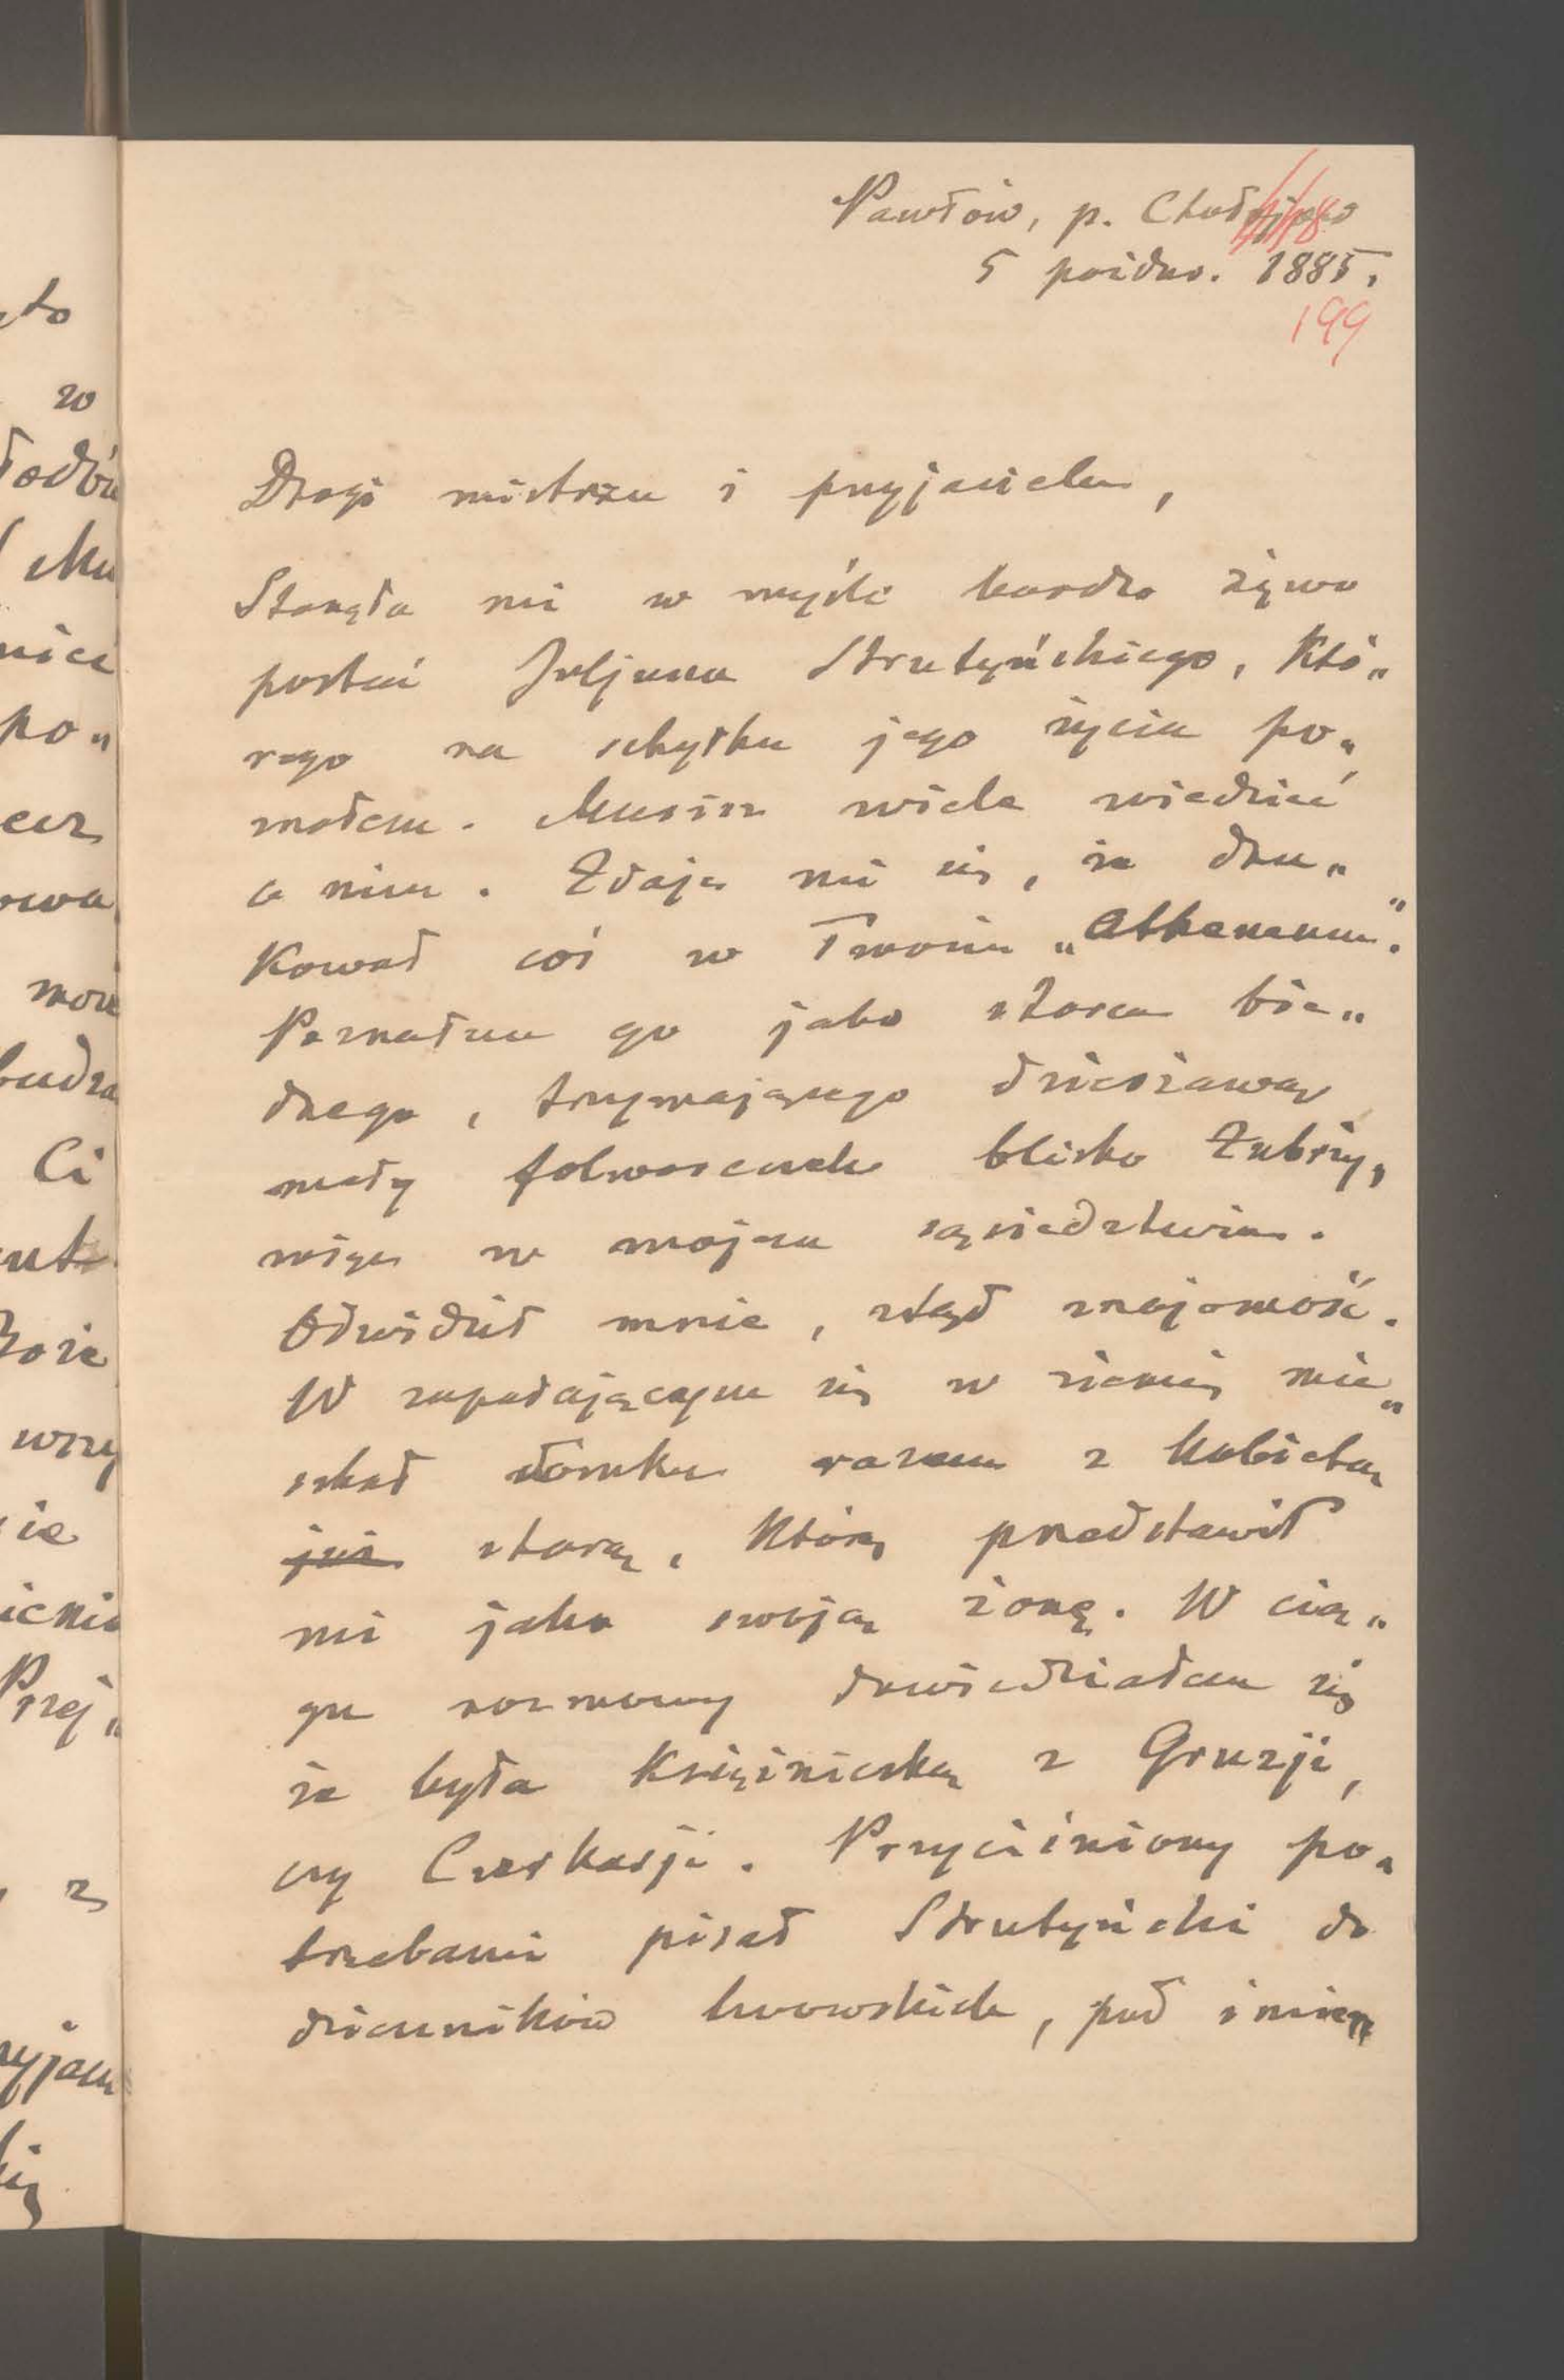 Pawłów, p. Chołojów
448
5 paźdz. 1885.
199
Drogi mistrzu i przyjacielu,
Stanęła mi w myśli bardzo żywo
postać Juljana Strutyńskiego, któ„
rego na schyłku jego życia po„
znałem. Musisz wiele wiedzieć
o nim. Zdaje mi się, że dru„
kował coś w Twoim „Atheneum".
Poznałem go jako starca bie„
dnego, trzymającego dzierżawą
mały folwarczek blisko
więc w mojem sąsiedztwie.
Odwidził mnie, stąd znajomość.
W zapadającym się w ziemię mie„
szkał domku razem z kobietą
już starą, którą przedstawił
mi jako swoją żonę. W cią„
gu rozmowy dowiedziałem się
że była księżniczką z Gruzji,
czy Czerkasji. Przyciśniony po„
trzebami pisał Strutyński do
dzienników lwowskich, pod imie„
to
w
po„
Ci
ie
z